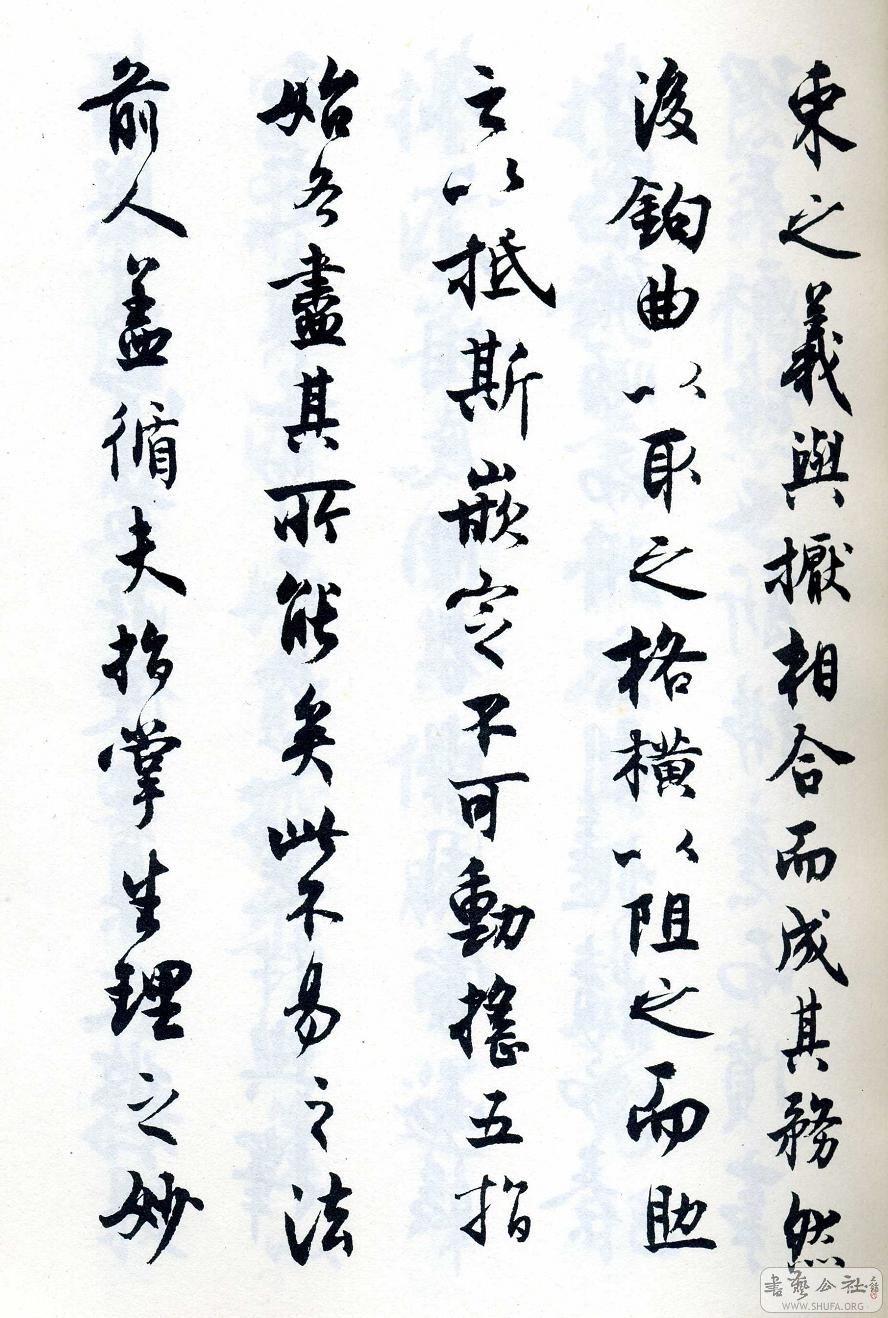 束之義與擫相合而成其務然
後鉤曲以取之格橫以阻之而助
之以抵斯嵌定不可動搖五指
始各盡其所能矣此不易之法
前人蓋循夫指掌生理之妙
書藝公社
WWW.SHUFA.ORG